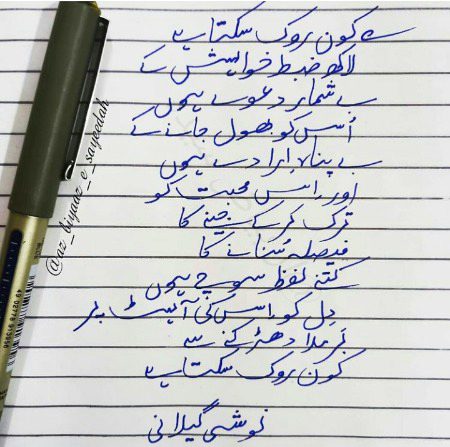 سے کون روک سکتا ہے
لاکھ ضبطِ خواہش کے
بے شمار دعوے ہوں
اُس کو بھول جانے کے
بے پناہ اِرادے ہوں
اور اِس محبت کو
ترک کر کے جینے کا
فیصلہ سُنانے کا
کتنے لفظ سوچے ہوں
دِل کو اِس کی آہٹ پر
بَرملا دھڑکنے سے
کون روک سکتا ہے
نوشی گیلانی
@az_biyaaz_e_sayeedah